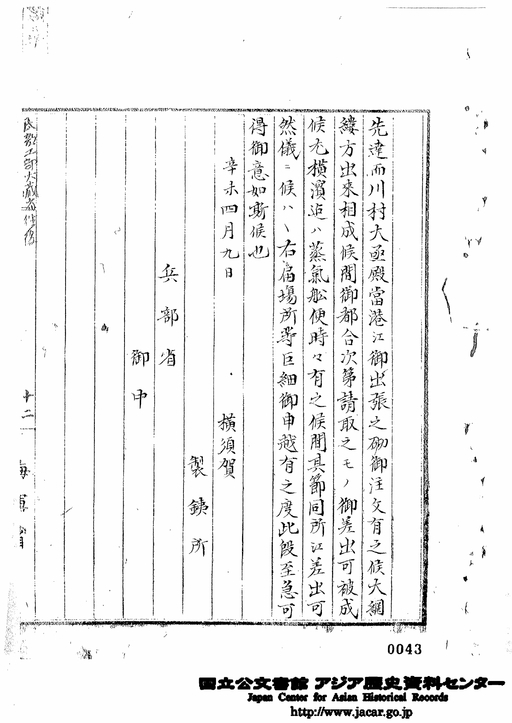 先達而川村大丞殿當港江御出張之砌御注文有之候大綱
縷方出来相成候間御都合次第請取之モノ御差出可被成
候尤横濱迠ハ蒸氣舩便時々有之候間其節同所江差出可
然儀ニ候ハヽ右届場所等巨細御申越有之度此段至急可
得御意如斯候也
辛未四月九日
横須賀
製鉄所
兵部省
御中
十二
海軍省
0043
国立公文書館 アジア歴史資料センター
Japan Center for Asian Historical Records
http://www.jacar.go.jp